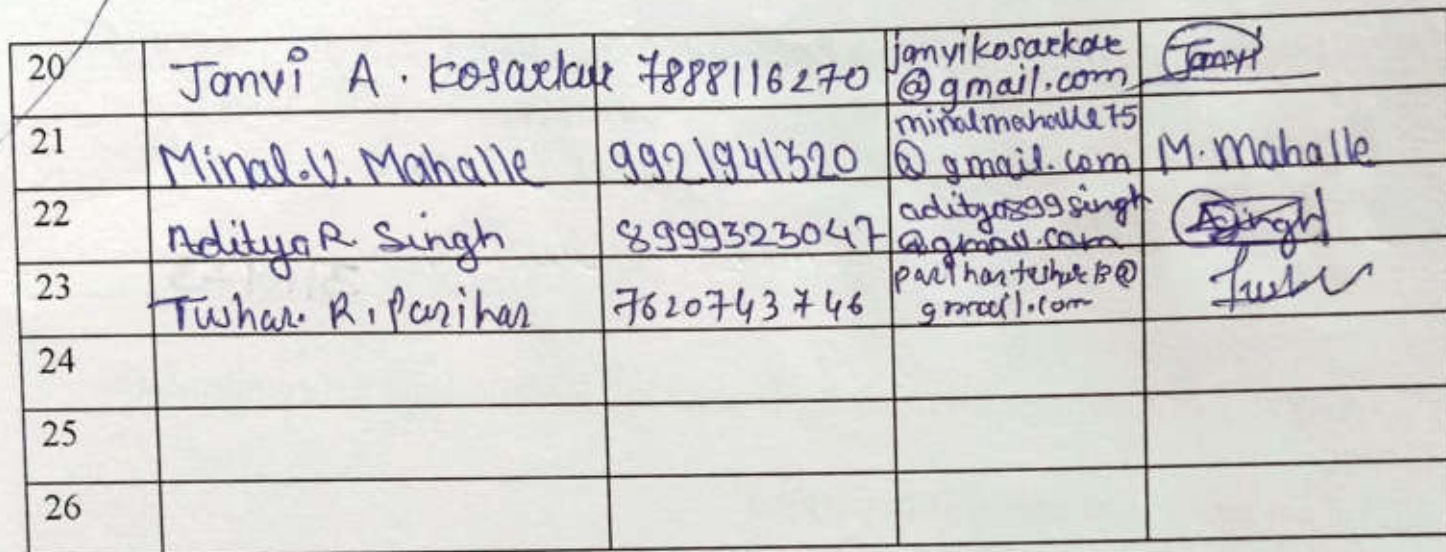 20 Janvi A. Kosarkar 7888116270 janvikosarkar @gmail.com Janvi
21 Minal.V. Mahalle 9921941320 minalmahalle75 @gmail.com M. Mahalle
22 Aditya R. Singh 8999323047 aditya899singh @gmail.com ASingh
23 Tushar. R. Parihar 7620743746 parihartushar13@ gmail.com Tushar
24
25
26